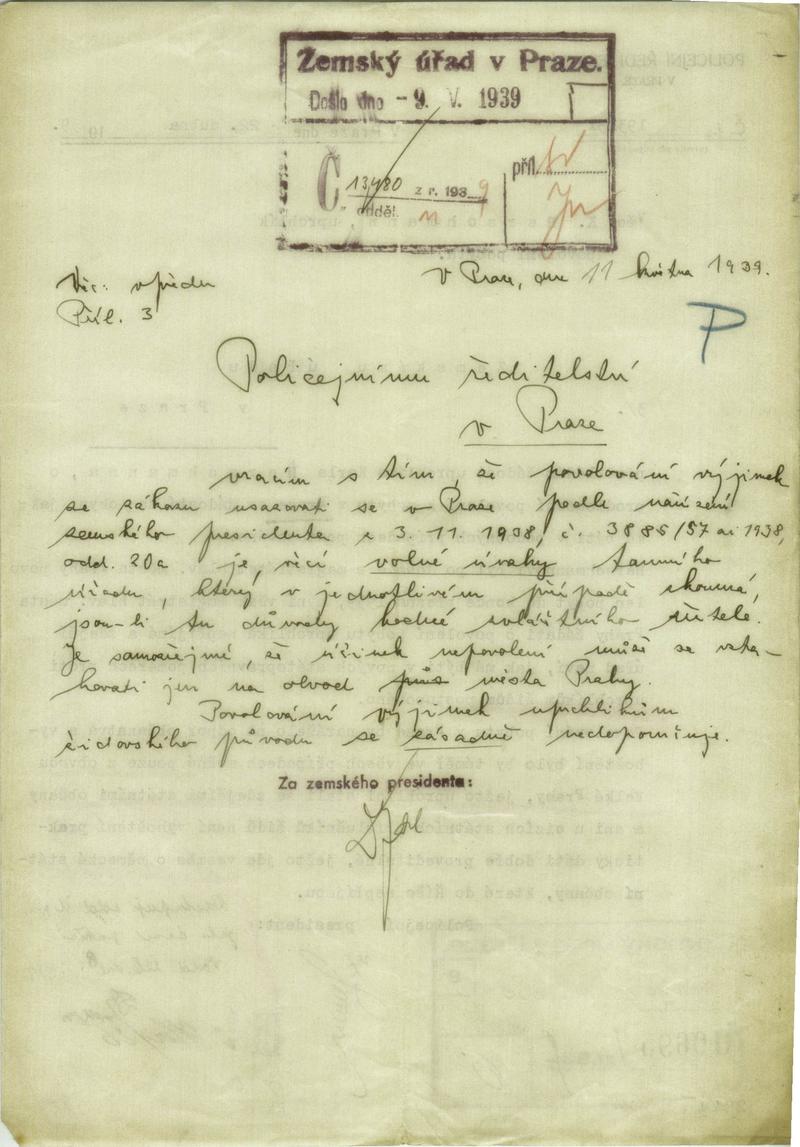 Zemský úřad v Praze.
Došlo dne - 9. V. 1939
Č 13480 z r. 1939 příl.
odděl.
Věc: vpředu
V Praze, dne 11 května 1939.
Příl. 3
P
Policejnímu ředitelství
v Praze
vracím s tím, že povolování výjimek
ze zákazu usazovati se v Praze podle nařízení
zemského presidenta z 3. 11. 1938, č. 3886/57 ai 1938,
odd. 20a je věcí volné úvahy tamního
úřadu, který v jednotlivém případě zkoumá,
jsou-li tu důvody hodné zvláštního zřetele.
Je samozřejmé, že účinek nepovolení může se vzta-
hovati jen na obvod města Prahy.
Povolování výjimek uprchlíkům
židovského původu se zásadně nedoporučuje.
Za zemského presidenta: